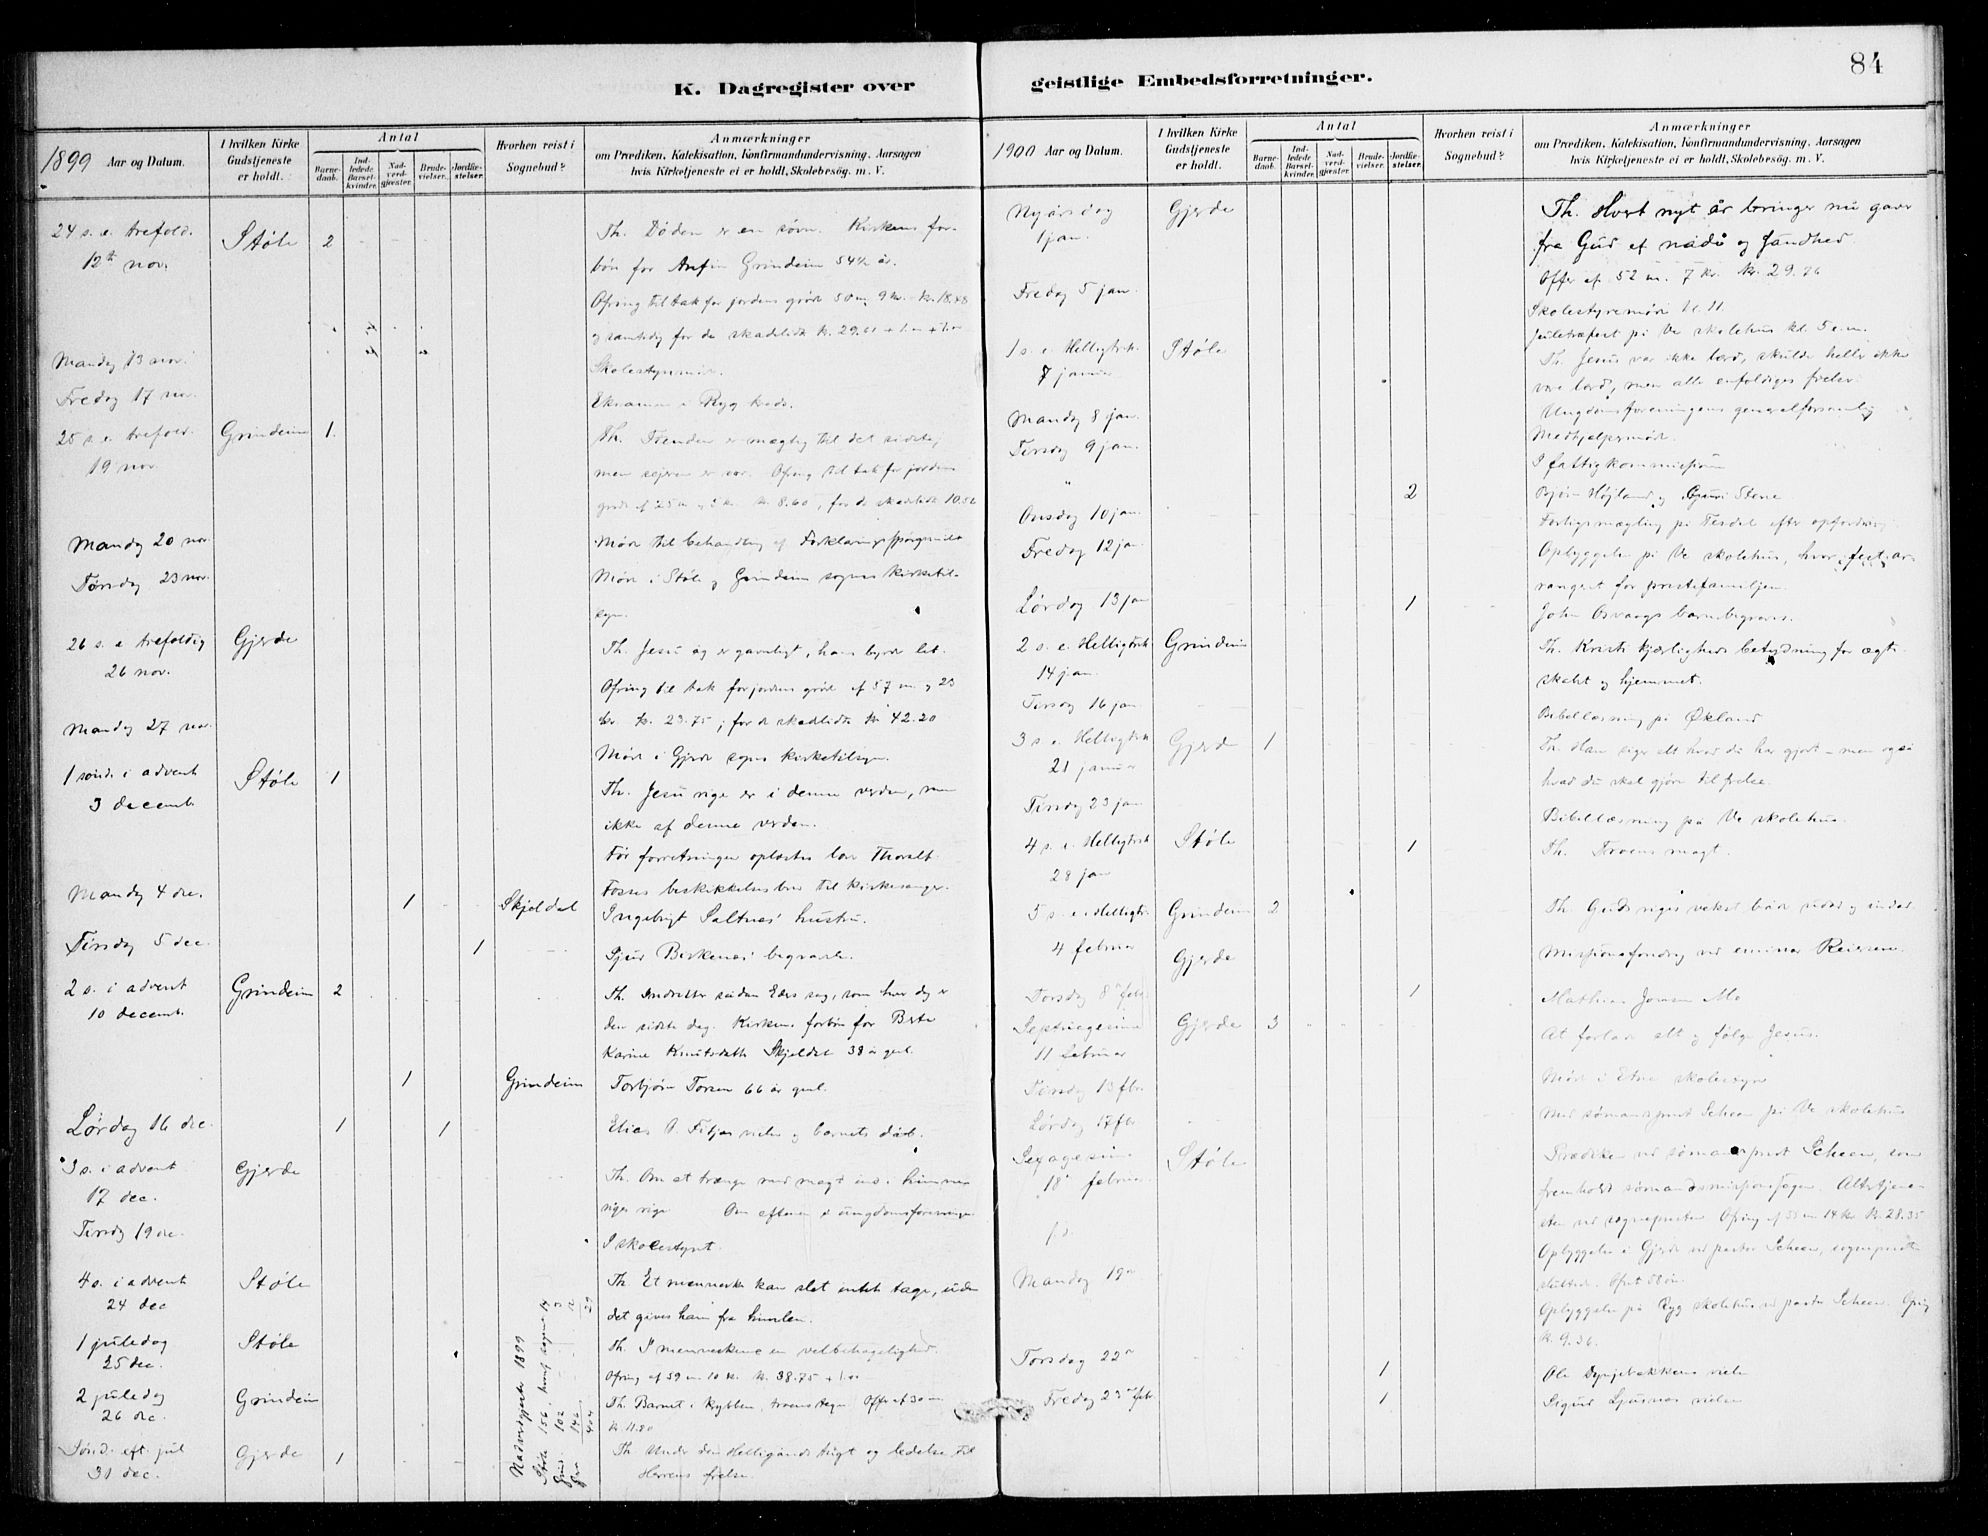 K. Dagregister over geistlige Embedsforretninger.
84
1899 Aar og Datum.
I hvilken Kirke Gudstjeneste er holdt.
Antal
Barnedaab.
Indledede Barselkvinder.
Nadverdgjester.
Brudevielser.
Jordfæstelser.
Hvorhen reist i Sognebud?
Anmærkninger
om Prædiken, Katekisation, Konfirmandundervisning, Aarsagen
hvis Kirketjeneste ei er holdt, Skolebesög. m. V.
24 s. e. trefold. Støle 2 Th. Døden er en søvn. Kirkens for-
12te nov. bøn for Anfin Grindeim 54½ år.
Ofring til tak for jordens grøde 50 m. 9 kv. kr. 18.48
og samtidig for de skadelidte kr. 29.01
Mandag 13 nov. Skolestyremøde.
Fredag 17 nov. Eksamen i Ryg kreds.
25 s. e. trefold. Grindeim 1. Th. Fienden er mægtig til det sidste,
19 nov. men sejeren er vor. Ofring til tak for jordens
grøde af 25 m og 5 kv. kr. 8.60, for de skadelidte 10.52
Mandag 20 nov. Møde til behandling af Forklaringsspørgsmålet
Torsdag 23 nov. Møde i Støle og Grindeim sognes kirketil-
syn.
26 s. e. trefoldig Gjerde Th. Jesu åg er gavnligt, hans byrde let.
26 nov. Ofring til tak for jordens grøde af 57 m. og 23
kv. kr. 23.75; for de skadelidte kr 42.20
Mandag 27 nov. Møde i Gjerde sogns kirketilsyn.
1 sønd. i advent Støle 1 Th. Jesu rige er i denne verden, men
3 decemb. ikke af denne verden.
Før forretningen oplæstes lær. Thorvald
Fosses beskikkelsesbrev til kirkesanger.
Mandag 4 dec. 1 Skjeldal Ingebrigt Saltnes' hustru.
Tirsdag 5 dec. 1 Sjur Birkenes' begravelse.
2 s. i advent Grindeim 2 Th. Indretter saadan Eders sag, som hver dag er
10 decemb. den sidste dag. Kirkens forbøn for Berte
Karine Knutsdatter Skjeldal 38 år gml.
1 Grindeim Torbjørn Torsen 66 år gml.
Lørdag 16 dec. 1 1 Elias Fitjas vielse og barnets dåb.
3 s. i advent Gjerde Th. Om at trænge med magt ind i himme-
17 dec. riges rige Om aftenen i ungdomsforeningen
Tirsdag 19 dec. I skolestyret.
4 s. i advent Støle Th. Et menneske kan slet intet tage, uden
24 dec det gives ham fra himlen.
1 juledag Støle Th. I menneskene en velbehagelighed.
25 dec. Ofring af 59 m. 10 kv. kr. 38.75
2 juledag Grindeim Th. Barnet i krybben, troens tegn. Offer af 30 m.
26 dec. kr. 11.80
Sønd. eft. jul Gjerde 1 Th. Under den Helligånds tugt og ledelse til
31 dec. Herrens frelse.
Nadverdgjester 1899
Støle 156, 14
Grind. 102
Gje. 146
404 29
1900 Aar og Datum.
I hvilken Kirke Gudstjeneste er holdt.
Antal
Barnedaab.
Indledede Barselkvinder.
Nadverdgjester.
Brudevielser.
Jordfæstelser.
Hvorhen reist i Sognebud?
Anmærkninger
om Prædiken, Katekisation, Konfirmandundervisning, Aarsagen
hvis Kirketjeneste ei er holdt, Skolebesög. m. V.
Nyårsdag Gjerde Th. Hvert nyt år bringer nu gaver
1 jan. fra Gud af nåde og sandhed.
Offer af 52 m. 7 kv. kr. 29.76
Fredag 5 jan. Skolestyremøde kl. 11.
Juletræfest på Ve skolehus kl. 5 e.m.
1 s. e. Helligtrek. Støle Th. Jesus var ikke lærd, skulde heller ikke
7 januar være lærd, men alle enfoldiges frelser.
Mandag 8 jan. Ungdomsforeningens generalforsamling
Tirsdag 9 jan. Medhjelpermøde.
" I fattigkommissionen
Onsdag 10 jan. 2 Bjørn Højland og Guri Stene
Fredag 12 jan. Forligsmægling på Tesdal efter opfordring
Opbyggelse på Ve skolehus, hvor fest ar-
rangeret for prestefamiljen.
Lørdag 13 jan 1 John Osvaags barnebegravelse.
2 s. e. Helligtrek Grindeim Th. Kristi kjærligheds betydning for ægte-
14 jan. skabet og hjemmet.
Tirsdag 16 jan. Bibellæsning på Økland
3 s. e. Helligtrek Gjerde 1 Th. Han siger alt hvad du har gjort – men også
21 januar hvad du skal gjøre til frelse.
Tirsdag 23 jan. Bibellæsning på Ve skolehus.
4 s. e. Helligtrek Støle 1 Th. Troens magt.
28 jan
5 s. e. Helligtr. Grindeim 2 Th. Guds riges vekst både udad og indad.
4 februar Gjerde Missionsforedrag ved emissær Reiersen.
Torsdag 8de febr. 1 Mathias Jonsen Mo
Septuagesima Gjerde 3 At forlade alt og følge Jesus.
11 februar
Tirsdag 13 febr Møde i Etne skolestyre
Lørdag 17 febr Med sømansprest Scheen på Ve skolehus
Sexagesima Støle Prædiken ved sømansprest Scheen, som
18 februar fremholdt sømandsmissionssagen. Altertjene-
sten ved sognepresten Ofring af 55 m 14 kv kr. 28.35
Opbyggelse i Gjerde ved pastor Scheen, sognepresten
sluttede.
Mandag 19de Opbyggelse på Ryg skolehus ved pastor Scheen.
kr. 9.36.
Torsdag 22de 1 vielse
Fredag 23de febr. 1 Sigurd vielse